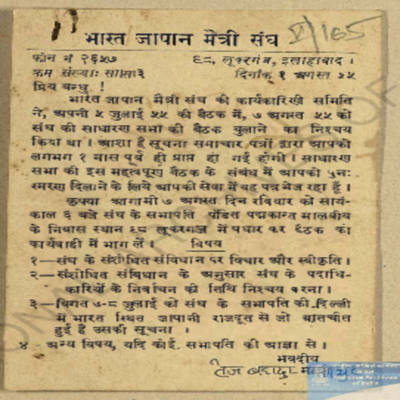 भारत जापान मैत्री संघ
V/165
फोन नं २६५७ ६८, लूकरगंज, इलाहाबाद ।
क्रम संख्याः सा।सा।३ दिनांक १ अगस्त ५५
प्रिय बन्धु !
भारत जापान मैत्री संघ की कार्यकारिणी समिति
ने, अपनी ५ जुलाई ५५ की बैठक में, ७ अगस्त ५५ को
संघ की साधारण सभा की बैठक बुलाने का निश्चय
किया था । आशा है सूचना समाचार पत्रों द्वारा आपको
लगभग १ मास पूर्व ही प्राप्त हो गई होगी । साधारण
सभा की इस महत्वपूर्ण बैठक के संबंध में आपको पुनः
स्मरण दिलाने के लिये आपकी सेवा में यह पत्र भेज रहा हूँ ।
कृपया आगामी ७ अगस्त दिन रविवार को सायं-
काल ६ बजे संघ के सभापति पंडित पद्मकान्त मालवीय
के निवास स्थान ६८ लूकरगंज में पधार कर बैठक की
कार्यवाही में भाग लें । विषय
१—संघ के संशोधित संविधान पर विचार और स्वीकृति ।
२—संशोधित संविधान के अनुसार संघ के पदाधि-
कारियों के निर्वाचन की तिथि निश्चय करना ।
३—विगत ७-८ जुलाई को संघ के सभापति की दिल्ली
में भारत स्थित जापानी राजदूत से जो बातचीत
हुई है उसकी सूचना ।
४ अन्य विषय, यदि कोई सभापति की आज्ञा से ।
भवदीय
तेज बहादुर